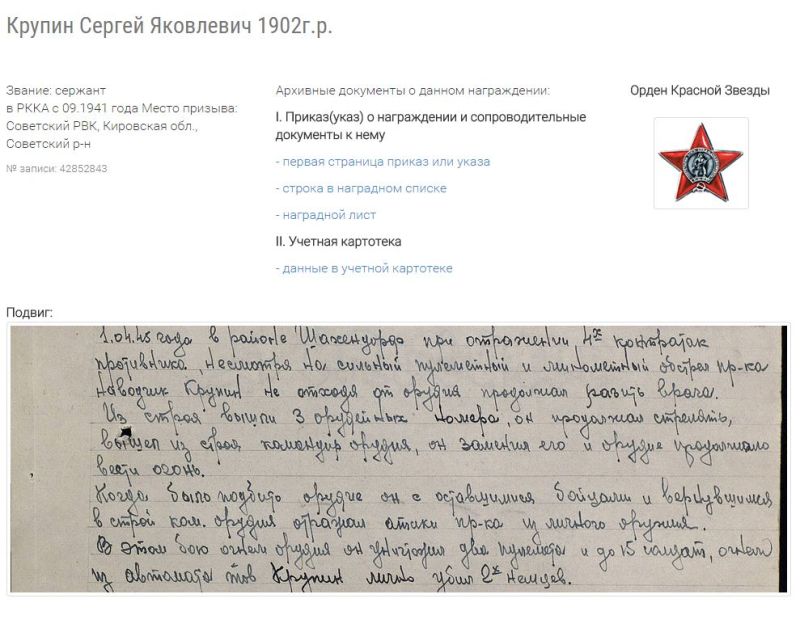 Крупин Сергей Яковлевич 1902г.р.
Звание: сержант
в РККА с 09.1941 года Место призыва:
Советский РВК, Кировская обл.,
Советский р-н
№ записи: 42852843
Архивные документы о данном награждении:
I. Приказ(указ) о награждении и сопроводительные
документы к нему
- первая страница приказ или указа
- строка в наградном списке
- наградной лист
II. Учетная картотека
- данные в учетной картотеке
Орден Красной Звезды
Подвиг:
1.04.45 года в районе Шахендорф при отражении 4х контратак
противника, несмотря на сильный пулеметный и минометный обстрел пр-ка
наводчик Крупин не отходя от орудия продолжал разить врага.
Из строя вышли 3 орудейных номера, он продолжал стрелять,
вышел из строя командир орудия, он заменил его и орудие продолжало
вести огонь.
Когда было подбито орудие он с оставшимися бойцами и вернувшимся
в строй ком. орудия отражал атаки пр-ка из личного оружия.
В этом бою огнем орудия он уничтожил два пулемета и до 15 солдат, огнем
из автомата тов Крупин лично убил 2х немцев.